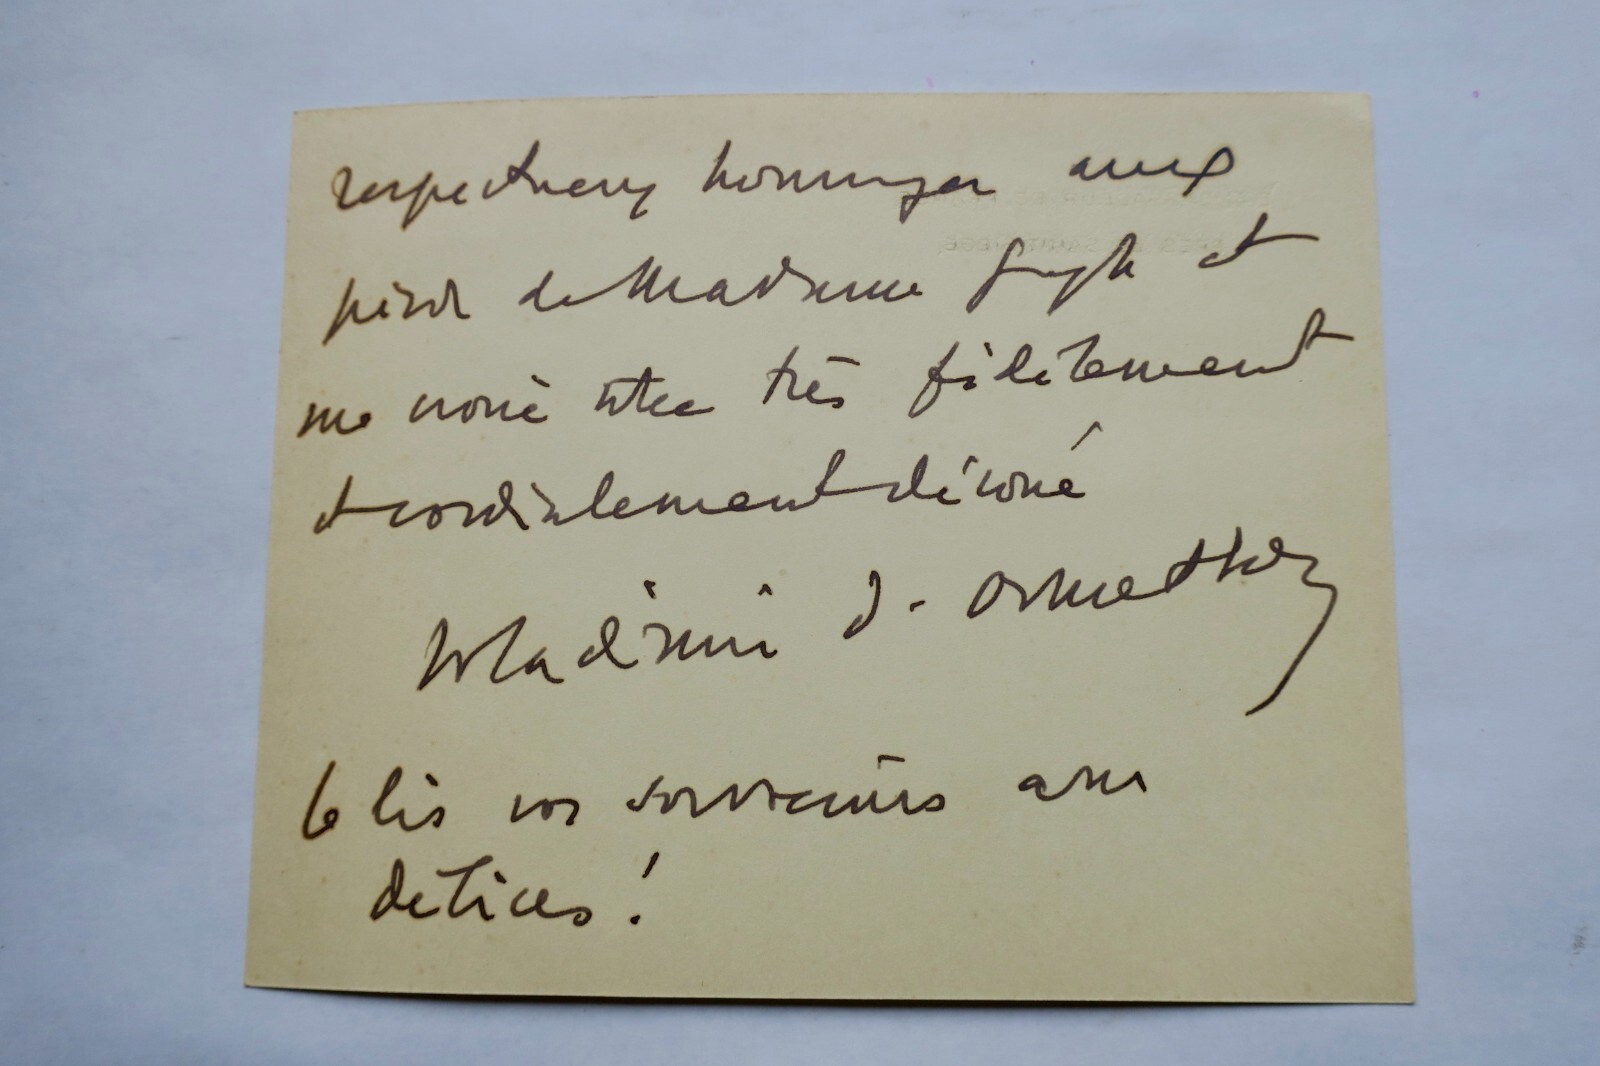 respectueux hommages aux
pieds de Madame Gregh et
me croire votre très fidèlement
et cordialement dévoué
Wladimir d'Ormesson
Je lis vos souvenirs avec
délices !